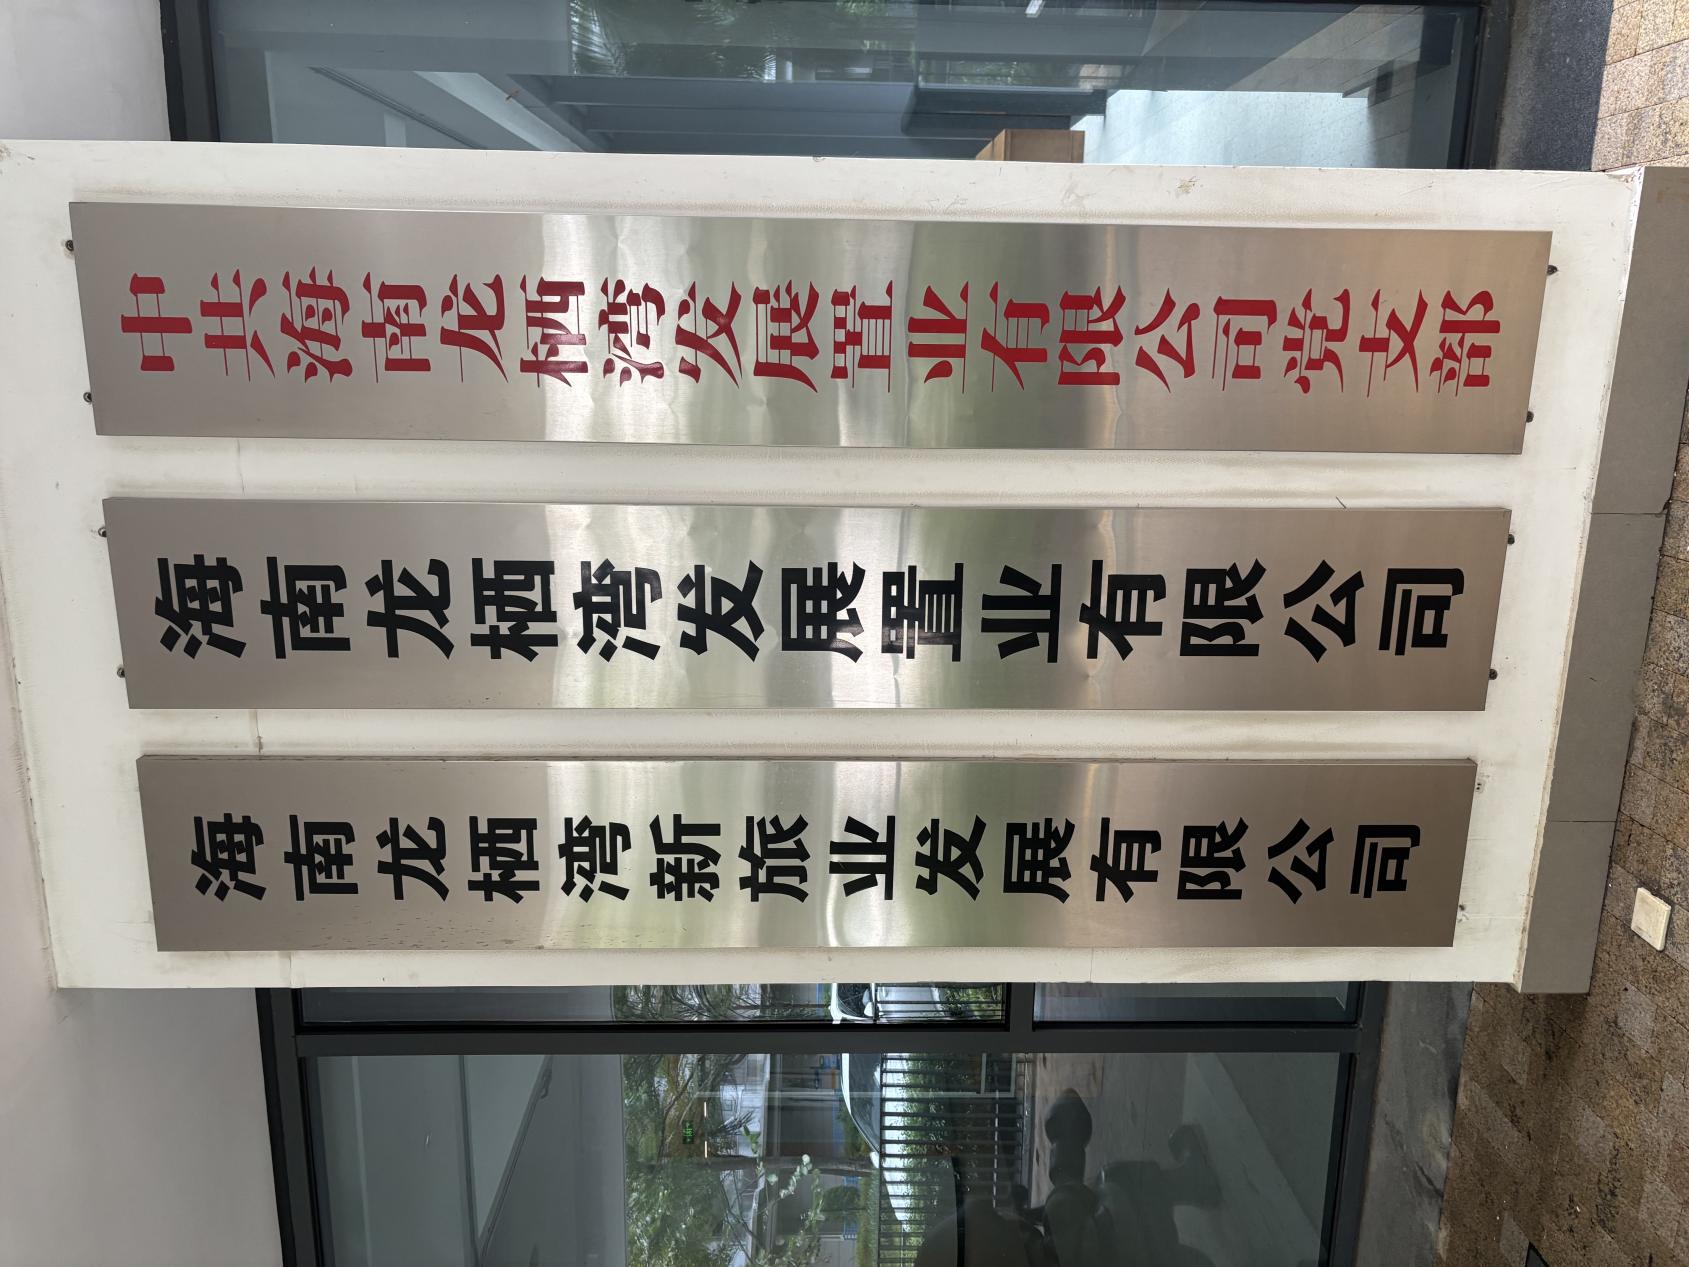 中共海南龙栖湾发展置业有限公司党支部
海南龙栖湾发展置业有限公司
海南龙栖湾新旅业发展有限公司